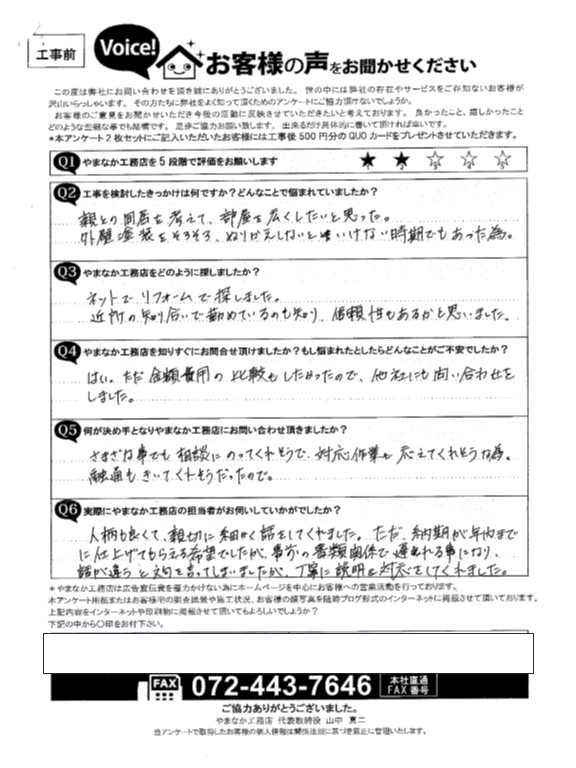 工事前
Voice!
お客様の声をお聞かせください
この度は弊社にお問い合わせを頂き誠にありがとうございました。 世の中には弊社の存在やサービスをご存知ないお客様が
沢山いらっしゃいます。 その方たちに弊社をよく知って頂くためのアンケートにご協力頂けないでしょうか。
お客様のご意見をお聞かせいただき今後の活動に反映させていただきたいと考えております。 良かったこと、嬉しかったこと
どのような些細な事でも結構です。 是非ご協力お願い致します。 出来るだけ具体的に書いて頂ければ幸いです。
*本アンケート2枚セットにご記入いただいたお客様には工事後500円分のQUOカードをプレゼントさせていただきます。
Q1 やまなか工務店を5段階で評価をお願いします
1 2 3 4 5
Q2 工事を検討したきっかけは何ですか？どんなことで悩まれていましたか？
親との同居を考えて、部屋を広くしたいと思った。
外壁塗装をそろそろ、ぬりかえしないといけない時期でもあった為。
Q3 やまなか工務店をどのように探しましたか？
ネットでリフォームで探しました。
近所の知り合いで勤めているのも知り、信頼性もあるかと思いました。
Q4 やまなか工務店を知りすぐにお問合せ頂けましたか？もし悩まれたとしたらどんなことがご不安でしたか？
はい。ただ金額費用の比較もしたかったので、他社にも問い合わせを
しました。
Q5 何が決め手となりやまなか工務店にお問い合わせ頂きましたか？
さまざな事でも相談にのってくれそうで、対応作業も応えてくれそうな為。
融通もきいてくれそうだったので。
Q6 実際にやまなか工務店の担当者がお伺いしていかがでしたか？
人柄も良くて、親切に細かく話をしてくれました。ただ、納期が年内まで
に仕上げてもらえる希望でしたが、事前の書類関係で遅れる事になり、
話が違うと文句を言ってしまいましたが、丁寧に説明&対応をしてくれました。
*やまなか工務店は広告宣伝費を極力かけない為にホームページを中心にお客様への営業活動を行っております。
本アンケート用紙またはお客様宅の調査風景や施工状況、お客様の顔写真を随時ブログ形式のインターネットに掲載させて頂いております。
上記内容をインターネットや印刷物に掲載させて頂いてもよろしいでしょうか？
下記の中から〇印をお付下さい。
FAX 072-443-7646 本社直通
FAX番号
ご協力ありがとうございました。
やまなか工務店 代表取締役 山中 寛二
当アンケートで取得したお客様の個人情報は関係法規に基づき厳正に管理いたします。